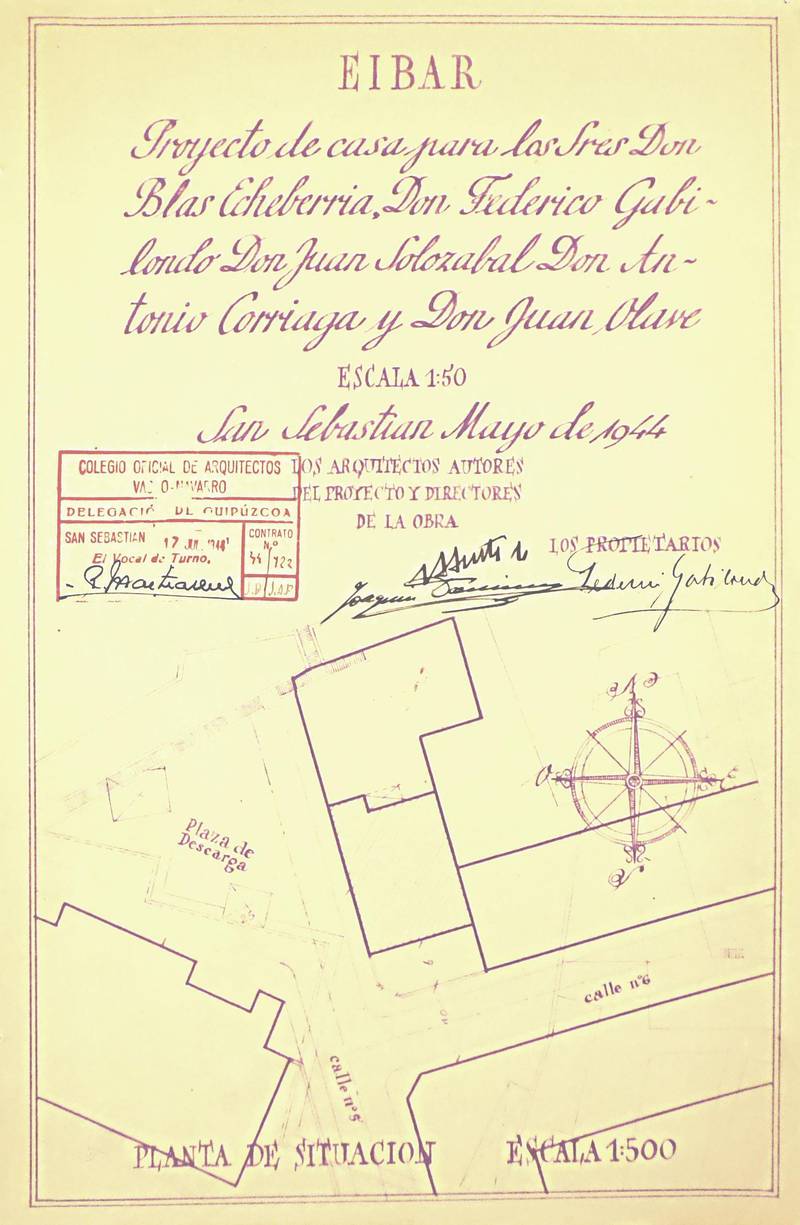 EIBAR
Proyecto de casa para los Sres Don
Blas Echeberria, Don Federico Gabi-
londo Don Juan Solozabal Don An-
tonio Corriaga y Don Juan Olave
ESCALA 1:50
San Sebastian Mayo de 1944
COLEGIO OFICIAL DE ARQUITECTOS
VASCO-NAVARRO
DELEGACIÓN DE GUIPÚZCOA
SAN SEBASTIAN 17 JUL. 1944
El Vocal de Turno,
CONTRATO
Nº
44 122
J.D. J.A.P.
LOS ARQUITECTOS AUTORES
DEL PROYECTO Y DIRECTORES
DE LA OBRA
LOS PROPIETARIOS
Joaquin
Federico Gabilondo
N
O
E
S
Plaza de
Descarga
calle nº6
calle nº5
PLANTA DE SITUACION ESCALA 1:500